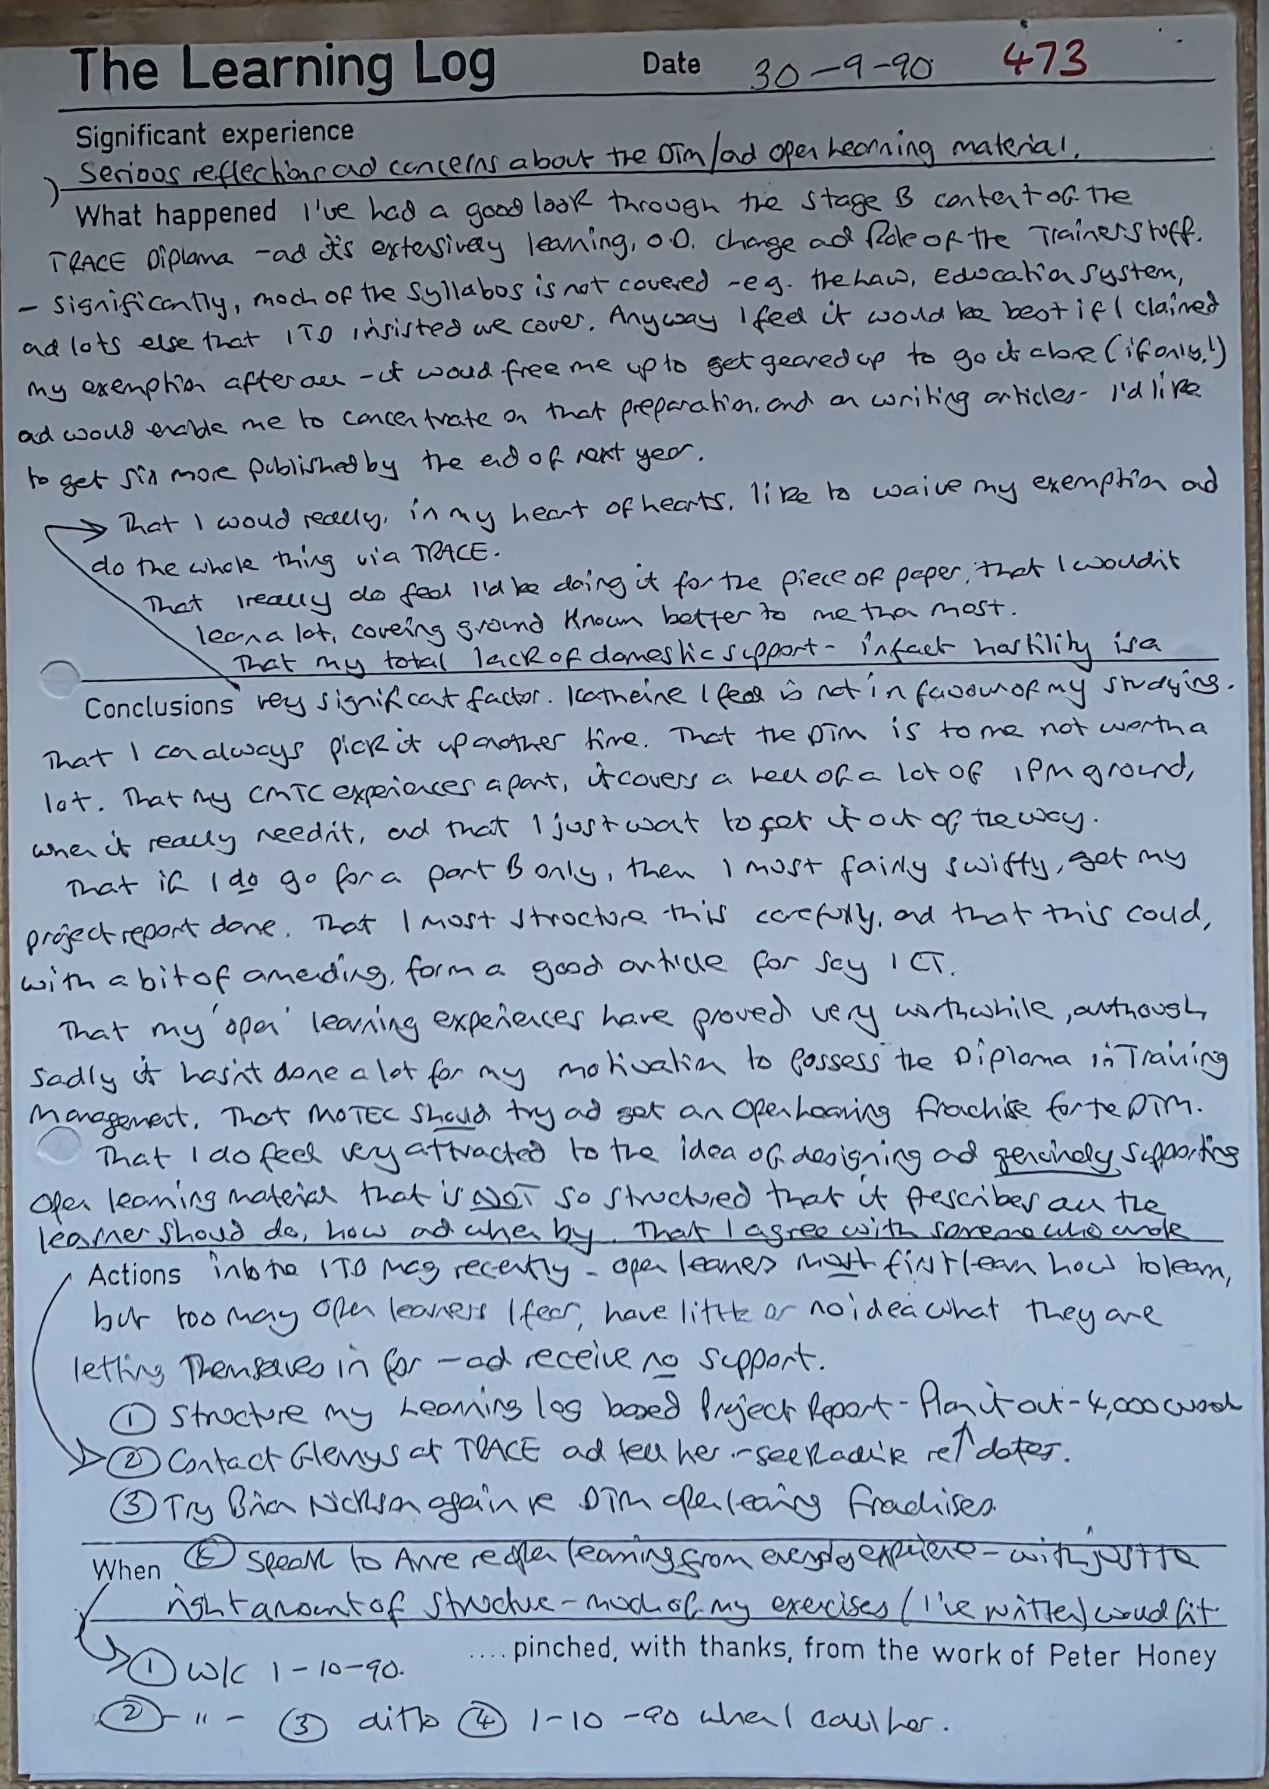 The Learning Log Date 30-9-90 473
Significant experience
Serious reflections ad concerns about the DTM/ad open Learning material.
What happened I've had a good look through the Stage B content of the
TRACE Diploma - ad it's extensively learning, O.D. change ad Role of the Trainer stuff.
- significantly, much of the syllabus is not covered - eg. the Law, Education System,
ad lots else that ITD insisted we cover. Anyway I feel it would be best if I claimed
my exemption after all - it would free me up to get geared up to go it alone (if only!)
ad would enable me to concentrate on that preparation, and on writing articles - I'd like
to get six more published by the end of next year.
That I would really, in my heart of hearts, like to waive my exemption ad
do the whole thing via TRACE.
That I really do feel I'd be doing it for the piece of paper, that I wouldn't
learn a lot, covering ground known better to me than most.
That my total lack of domestic support - in fact hostility is a
Conclusions very significant factor. Katherine I feel is not in favour of my studying.
That I can always pick it up another time. That the DTM is to me not worth a
lot. That my CMTC experiences apart, it covers a hell of a lot of IPM ground,
when it really needn't, ad that I just want to get it out of the way.
That if I do go for a part B only, then I must fairly swiftly, get my
project report done. That I must structure this carefully, and that this could,
with a bit of amending, form a good article for say ICT.
That my 'open' learning experiences have proved very worthwhile, although
sadly it hasn't done a lot for my motivation to possess the Diploma in Training
Management. That MOTEC should try ad get an Open Learning franchise for the DTM.
That I do feel very attracted to the idea of designing ad genuinely supporting
open learning material that is NOT so structured that it prescribes all the
learner should do, how ad when by. That I agree with someone who wrote
Actions into the ITD mag recently - open learners must first learn how to learn,
but too many open learners I fear, have little or no idea what they are
letting themselves in for - ad receive no support.
① Structure my Learning log based Project Report - Plan it out - 4,000 words
② Contact Glenys at TRACE ad tell her - see re dates.
③ Try Brian Nickson again re DTM open learning franchises.
When speak to Anne re open learning from everyday experience - with just the
right amount of structure - much of my exercises (I've written) would fit
.... pinched, with thanks, from the work of Peter Honey
① W/C 1-10-90.
② - " - ③ ditto ④ 1-10-90 when I call her.